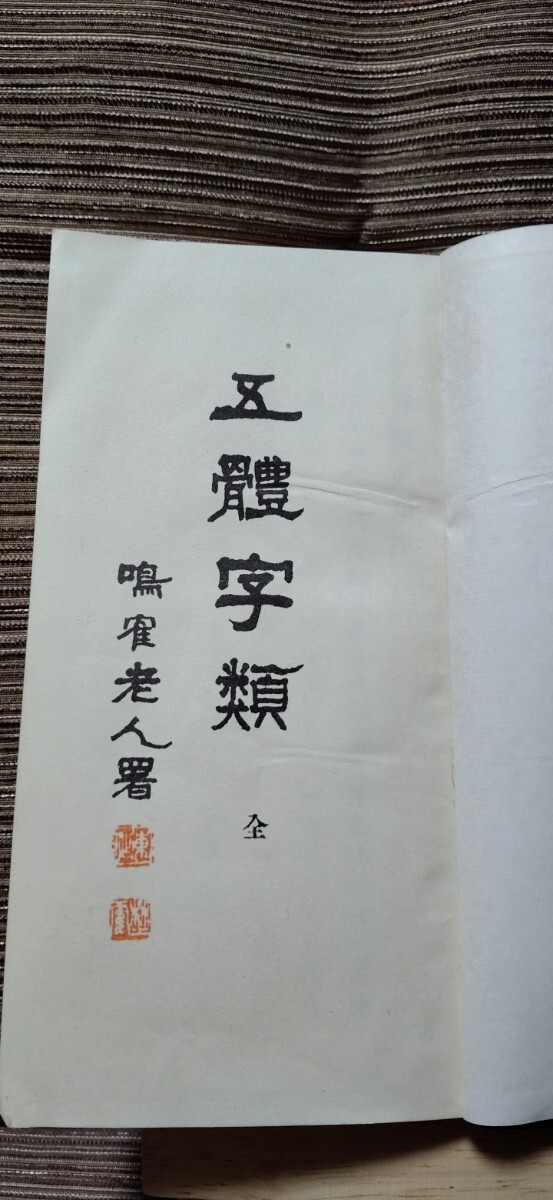 五體字類
全
鳴隺老人署